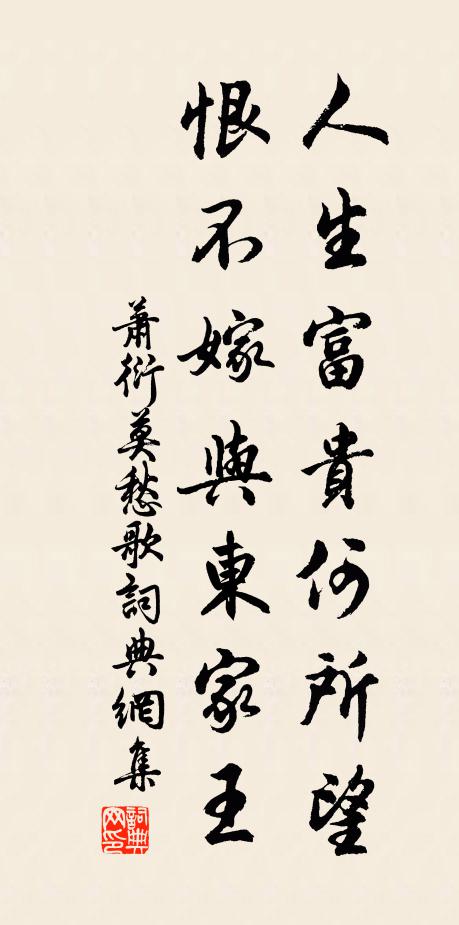 人生富貴何所望
恨不嫁與東家王
蕭衍莫愁歌詞典網集
詞典网印